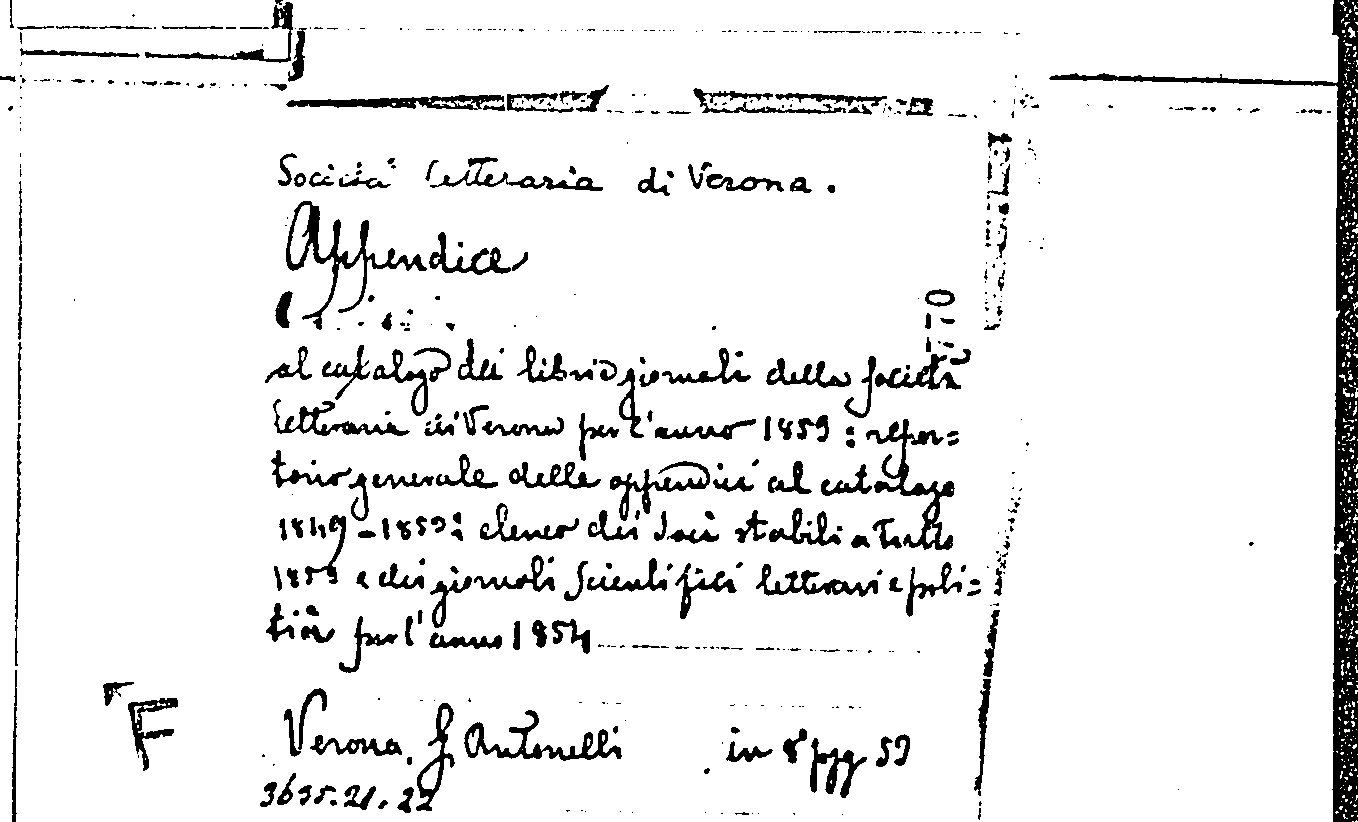 Società letteraria di Verona.
Appendice
al catalogo dei libri e giornali della Società
letteraria di Verona per l'anno 1859: reper=
torio generale delle appendici al catalogo
1849-1859: elenco dei soci stabili a tutto
1859 e dei giornali scientifici letterari e poli=
tici per l'anno 1854
Verona, G. Antonelli in 8° pgg 59
3695.21.22
F